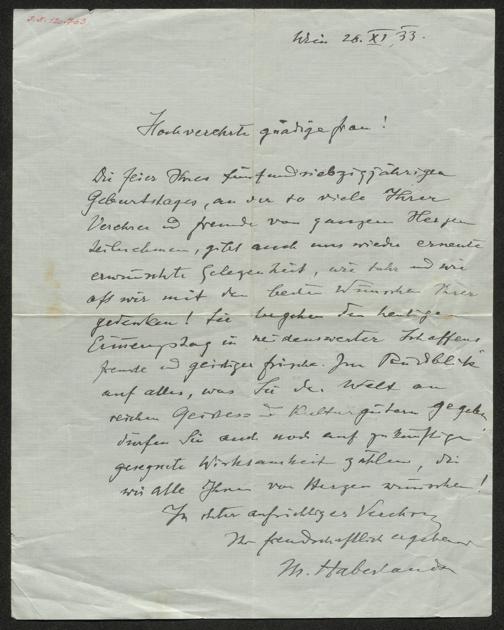 Wien 26. XI. 33.
Hochverehrte gnädige Frau!
Die Feier Ihres fünfundsiebzigjährigen
Geburtstages, an der so viele Ihrer
Verehrer und Freunde von ganzem Herzen
teilnehmen, gibt auch uns wieder erneute
erwünschte Gelegenheit, wie sehr und wie
oft wir mit den besten Wünschen Ihrer
gedenken! Sie begehen den heutigen
Erinnerungstag in neidenswerter Schaffens
freude und geistiger Frische. Im Rückblick
auf alles, was Sie der Welt an
reichen Geistes und Kulturgütern gegeben
dürfen Sie auch noch auf zukünftige
gesegnete Wirksamkeit zählen, die
wir alle Ihnen von Herzen wünschen!
In aufrichtiger Verehrung
Ihr freundschaftlich ergebener
M. Haberlandt